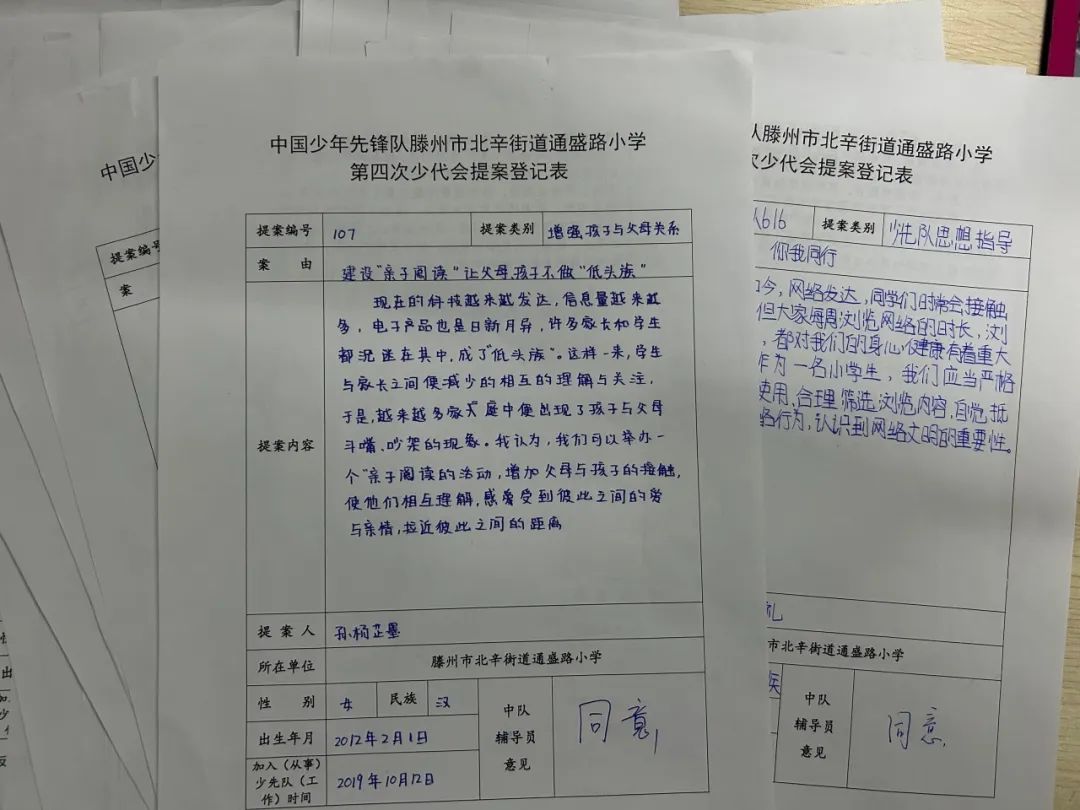 中国少年先锋队滕州市北辛街道通盛路小学
第四次少代会提案登记表
提案编号 107 提案类别 增强孩子与父母关系
案 由 建设"亲子阅读"让父母,孩子不做"低头族"
提案内容
现在的科技越来越发达,信息量越来越
多,电子产品也是日新月异,许多家长和学生
都沉迷在其中,成了"低头族"。这样一来,学生
与家长之间便减少的相互的理解与关注,
于是,越来越多家庭中便出现了孩子与父母
斗嘴、吵架的现象。我认为,我们可以举办一
个"亲子阅读的活动,增加父母与孩子的接触,
使他们相互理解,感受到彼此之间的爱
与亲情,拉近彼此之间的距离
提 案 人 孙杨芷墨
所在单位 滕州市北辛街道通盛路小学
性 别 女 民族 汉
出生年月 2012年2月1日
加入(从事)
少先队(工
作)时间
2019年10月12日
中队
辅导员
意见
同意
队滕州市北辛街道通盛路小学
次少代会提案登记表
616 提案类别 少先队思想指导
你我同行
今,网络发达,同学们时常会接触
但大家每周浏览网络的时长,浏
,都对我们的身心健康有着重大
作为一名小学生,我们应当严格
使用、合理筛选浏览内容,自觉抵
络行为,认识到网络文明的重要性。
市北辛街道通盛路小学
族
中队
辅导员
意见
同意
中国少
提案编号
案